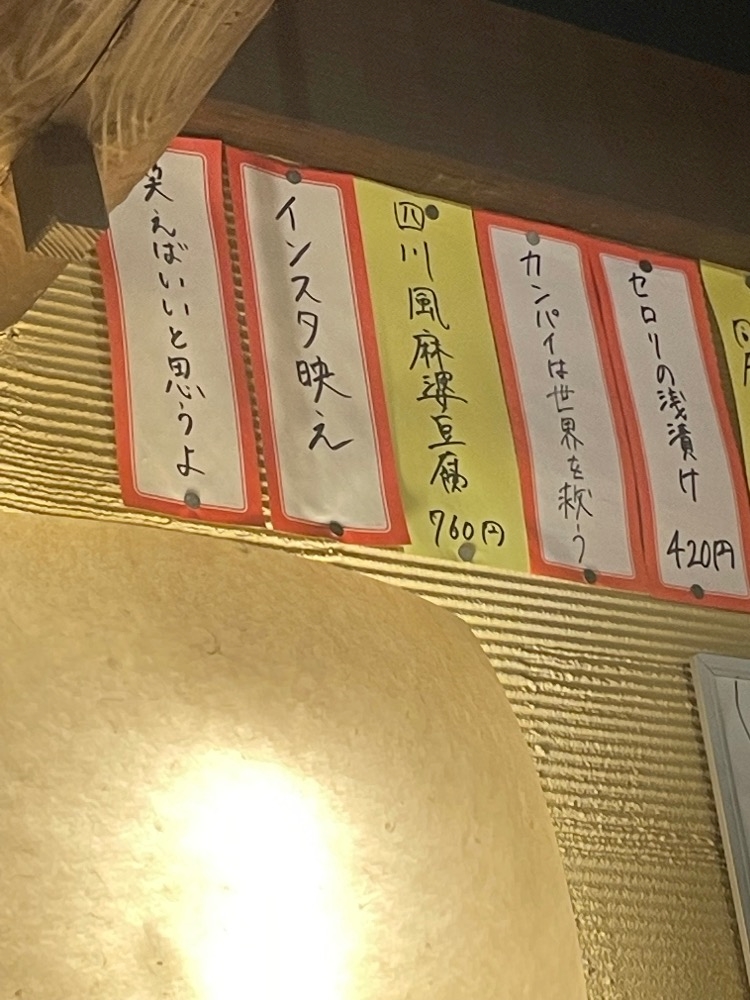 セロリの浅漬け
420円
カンパイは世界を救う
四川風麻婆豆腐
760円
インスタ映え
笑えばいいと思うよ